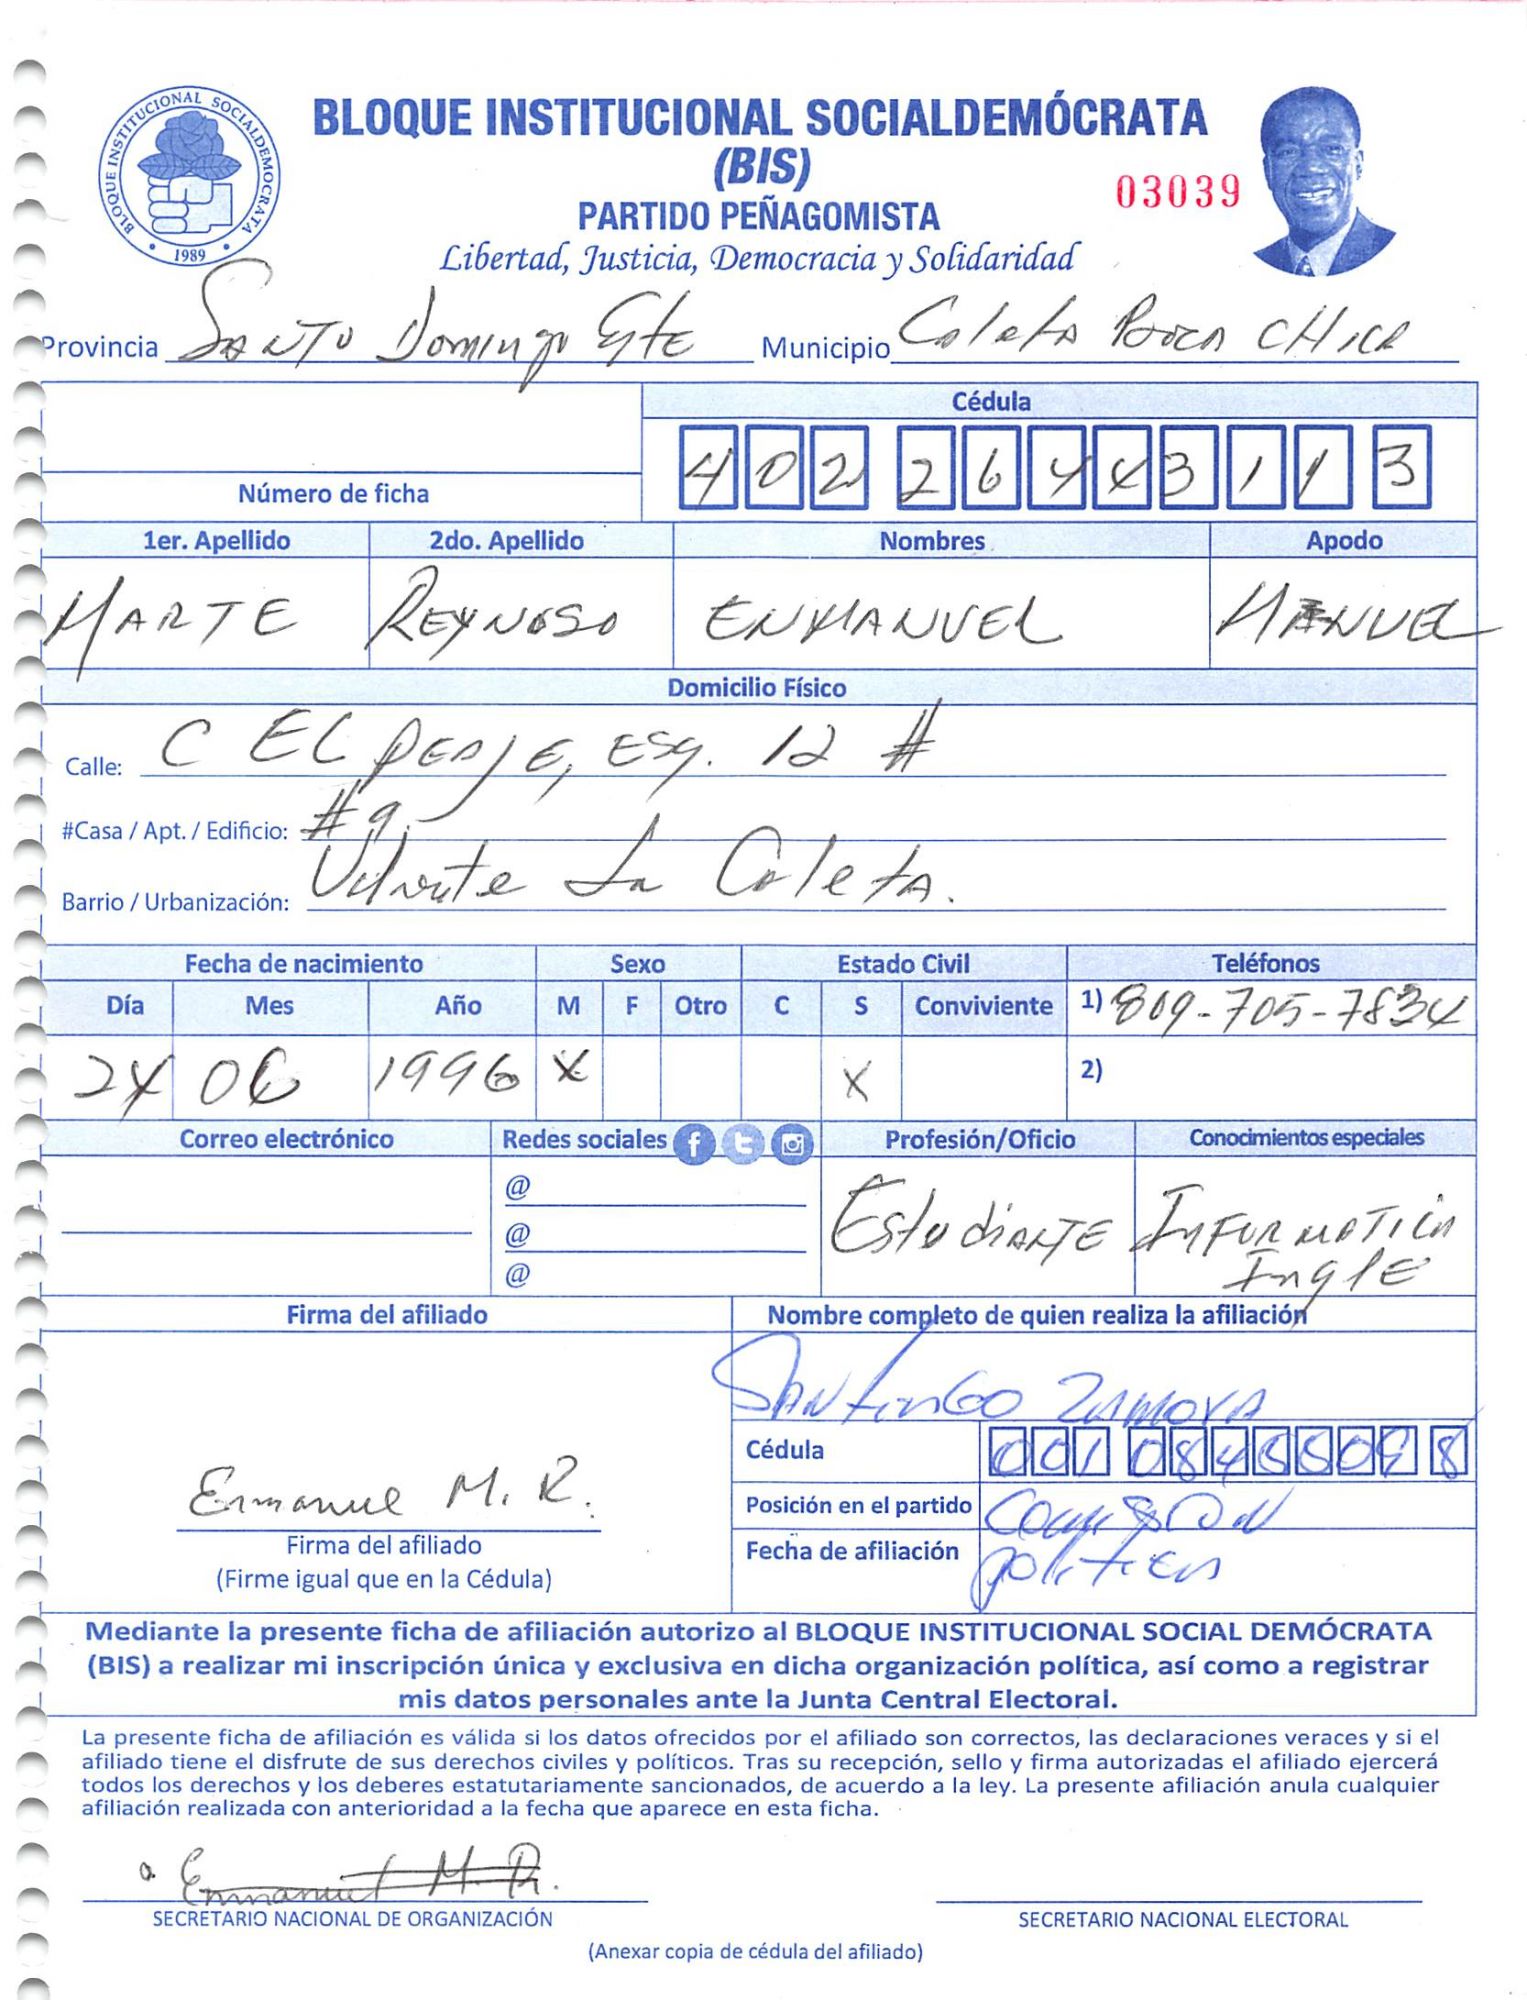 BLOQUE INSTITUCIONAL SOCIALDEMÓCRATA
(BIS)
PARTIDO PEÑAGOMISTA
Libertad, Justicia, Democracia y Solidaridad
03039
BLOQUE INSTITUCIONAL SOCIALDEMOCRATA
1989
Provincia SANTO Domingo Este Municipio Caleta BOCA CHICA
Cédula
402 2644311 3
Número de ficha
1er. Apellido 2do. Apellido Nombres Apodo
MARTE REYNOSO ENMANUEL MANUEL
Domicilio Físico
Calle: C EL peaje, ESq. 12 #
#Casa / Apt. / Edificio: #9.
Barrio / Urbanización: La Caleta.
Fecha de nacimiento Sexo Estado Civil Teléfonos
Día Mes Año M F Otro C S Conviviente 1) 809-705-7834
24 06 1996 X X 2)
Correo electrónico Redes sociales Profesión/Oficio Conocimientos especiales
@
@
@
EstudiANTE INFORMATICA
InglE
Firma del afiliado Nombre completo de quien realiza la afiliación
SANTIAGO ZAMORA
Cédula 001 0845509 8
Enmanuel M. R.
Posición en el partido Comision
Fecha de afiliación politica
Firma del afiliado
(Firme igual que en la Cédula)
Mediante la presente ficha de afiliación autorizo al BLOQUE INSTITUCIONAL SOCIAL DEMÓCRATA
(BIS) a realizar mi inscripción única y exclusiva en dicha organización política, así como a registrar
mis datos personales ante la Junta Central Electoral.
La presente ficha de afiliación es válida si los datos ofrecidos por el afiliado son correctos, las declaraciones veraces y si el
afiliado tiene el disfrute de sus derechos civiles y políticos. Tras su recepción, sello y firma autorizadas el afiliado ejercerá
todos los derechos y los deberes estatutariamente sancionados, de acuerdo a la ley. La presente afiliación anula cualquier
afiliación realizada con anterioridad a la fecha que aparece en esta ficha.
Enmanuel M. R.
SECRETARIO NACIONAL DE ORGANIZACIÓN SECRETARIO NACIONAL ELECTORAL
(Anexar copia de cédula del afiliado)